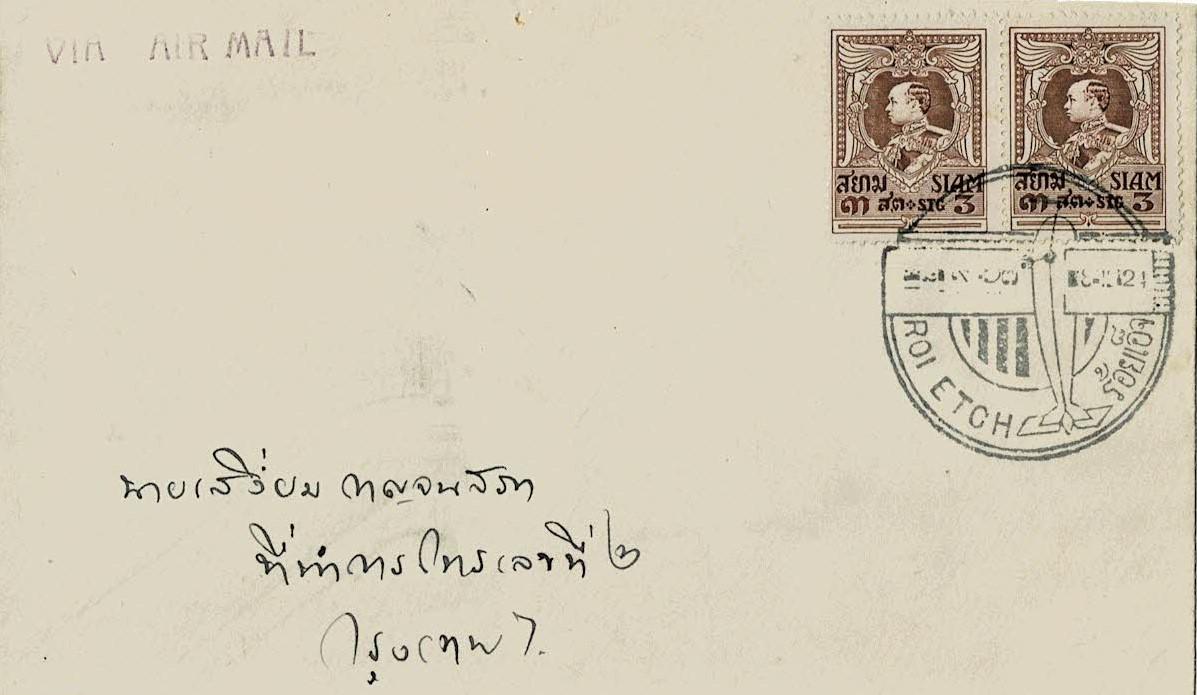 VIA AIR MAIL
สยาม SIAM
๓ สต STG 3
สยาม SIAM
๓ สต STG 3
ROI ETCH
ร้อยเอ็จ
นายเสงี่ยม กาญจน
ที่ทำการไปรเลขที่ ๒
กรุงเทพฯ